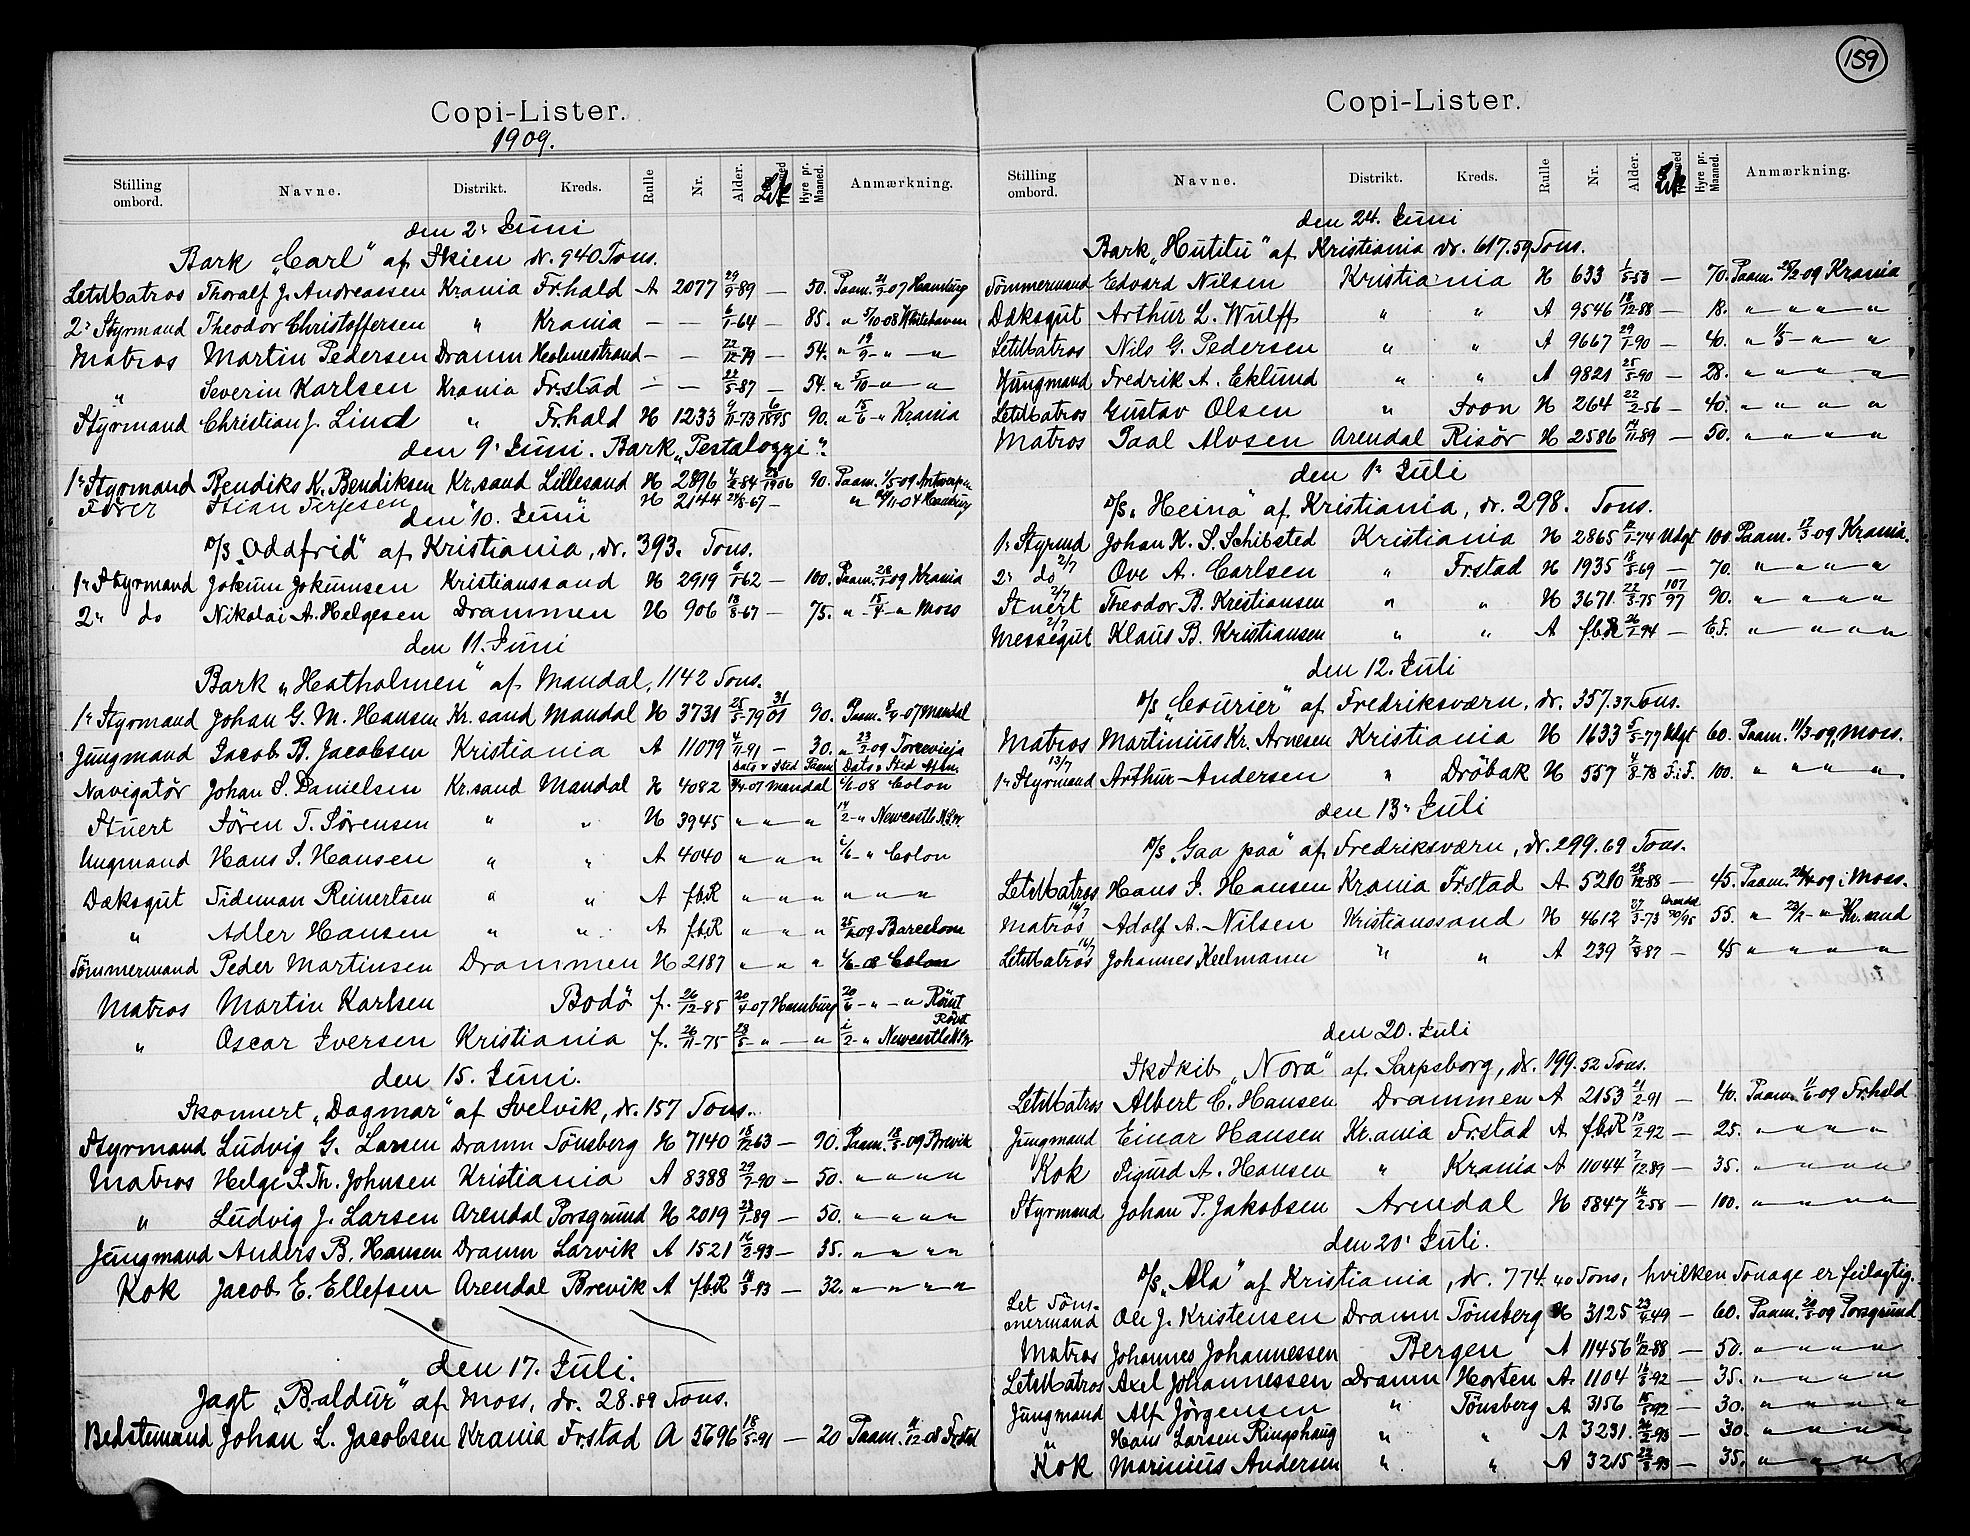 Copi-Lister.
1909.
Stilling ombord. Navne. Distrikt. Kreds. Rulle Nr. Alder. Hyre pr. Maaned. Anmærkning.
den 2' Juni
Bark „Carl" af Skien dr. 940 Tons.
LetMatros Thoralf J. Andreassen Krania Fr.hald A 2077 29/9-89 — 50. Paam. 21/2-07 Hamburg
2' Styrmand Theodor Christoffersen " Krania — — 6/1-64 — 85. " 5/10-08 Whitehaven
Matros Martin Pedersen Dramn Holmestrand — — 22/12-79 — 54. " 19/9- " — "
" Severin Karlsen Krania Fr.stad — — 22/5-87 — 54. " 5/10 — " — "
Styrmand Christian J. Lind " Fr.hald H 1233 9/11-73 6/1895 90. " 15/6 - " Krania
den 9' Juni. Bark „Pestalozzi".
1' Styrmand Bendiks K. Bendiksen Kr.sand Lillesand H 2896 4/2-84 1906 90. Paam. 1/5-09 Antwerpen
Fører Stian Terjesen " " H 2144 24/8-67 — " 14/11-04 Hamburg
den 10. Juni
D/S „Oddfrid" af Kristiania, dr. 393. Tons.
1' Styrmand Jokum Jokumsen Kristianssand H 2919 6/1-62 — 100. Paam. 28/1-09 Krania
2' do Nikolai A. Helgesen Drammen H 906 18/8-67 — 75. " 15/4 - " Moss
den 11. Juni
Bark „Hatholmen" af Mandal, 1142 Tons.
1' Styrmand Johan G. M. Hansen Kr.sand Mandal H 3731 25/5-79 31/01 90. Paam. 2/4-07 Mandal
Jungmand Jacob B. Jacobsen Kristiania A 11079 4/11-91 — 30. " 23/2-09 Torrevieja
Dato & Sted Paam. Dato & Sted Afm.
Navigatør Johan S. Danielsen Kr.sand Mandal H 4082 2/4-07 Mandal 6/6-08 Colon
Stuert Sören T. Sörensen " " H 3945 " " " 14/2- " Newcastle N.S.W.
Ungmand Hans S. Hansen " " A 4040 " " " 6/6- " Colon
Dæksgut Tideman Reinertsen " " A f.b.R " " " " " "
" Adler Hansen " " A f.b.R " " " 25/1-09 Barcelona
Tömmermand Peder Martinsen Drammen H 2187 " " " 6/6-08 Colon
Matros Martin Karlsen Bodö f. 26/12-85 20/4-07 Hamburg 20/6- " - " Römt
" Oscar Iversen Kristiania f. 26/11-75 28/5 " — " 1/2- " Newcastle N.S.W. Römt
den 15. Juni.
Skonnert „Dagmar" af Svelvik, dr. 157 Tons.
Styrmand Ludvig G. Larsen Dramn Tönsberg H 7140 18/12-63 — 90. Paam. 18/5-09 Brevik
Matros Helge S. Th. Johnsen Kristiania A 8388 29/7-90 — 50. " " " "
" Ludvig J. Larsen Arendal Porsgrund H 2019 23/1-89 — 50. " " " "
Jungmand Anders B. Hansen Dramn Larvik A 1521 16/2-93 — 35. " " " "
Kok Jacob E. Ellefsen Arendal Brevik A f.b.R 18/5-93 — 32. " " " "
den 17. Juli.
Jagt „Baldur" af Moss, dr. 28.89 Tons.
Bedstemand Johan L. Jacobsen Krania Fr.stad A 5696 18/5-91 — 20 Paam. 11/12-08 Fr.stad
159
Copi-Lister.
Stilling ombord. Navne. Distrikt. Kreds. Rulle Nr. Alder. Hyre pr. Maaned. Anmærkning.
den 24. Juni
Bark „Hutitu" af Kristiania dr. 617.59 Tons.
Tömmermand Edvard Nilsen Kristiania H 633 1/5-53 — 70. Paam. 25/2-09 Krania
Dæksgut Arthur L. Wulff " " A 9546 18/12-88 — 18. " " " "
LetMatros Nils G. Pedersen " " A 9667 29/1-90 — 40. " 11/5 — " — "
Jungmand Fredrik A. Eklund " " A 9821 25/5-90 — 28. " " " "
LetMatros Gustav Olsen " Soon H 264 22/2-56 — 40. " " " "
Matros Paal Alvsen Arendal Risör H 2586 14/11-89 — 50. " " " "
den 1' Juli
D/S. „Heina" af Kristiania, dr. 298. Tons.
1' Styrmd Johan K. S. Schibsted Kristiania H 2865 12/1-74 Udgt 100. Paam. 17/3-09 Krania.
2' do 2/7 Ove A. Carlsen " Fr.stad H 1935 18/5-69 — 70. " " " "
Stuert 2/7 Theodor B. Kristiansen " " H 3671 22/3-75 107/97 90. " " " "
Messegut 2/7 Klaus B. Kristiansen " " A f.b.R 26/1-94 — E.F. " " " "
den 12. Juli
D/S „Courier" af Fredriksværn, dr. 357.37 Tons.
Matros Martinius Kr. Arnesen Kristiania H 1633 5/5-77 Udgt 60. Paam. 11/3-09, Moss.
1' Styrmand 13/7 Arthur Andersen " Dröbak H 557 4/8-78 F.F. 100. " " " "
den 13' Juli
D/S „Gaa paa" af Fredriksværn, dr. 299.69 Tons.
LetMatros Hans J. Hansen Krania Fr.stad A 5210 28/12-88 — 45. Paam. -09 i Moss.
Matros 16/7 Adolf A. Nilsen Kristianssand H 4612 27/3-73 Arendal 90/95 55. " 23/2 - " Kr.sand
LetMatros 16/7 Johannes Keelmann " " A 239 2/8-87 — 45 " " " "
den 20. Juli
Sk.Skib „Nora" af Sarpsborg, dr. 199.52 Tons.
LetMatros Albert C. Hansen Drammen A 2153 21/2-91 — 40. Paam. 11/6-09 Fr.hald
Jungmand Einar Hansen Kr.ania Fr.stad A f.b.R 13/2-92 — 25. " " " "
Kok Sigurd A. Hansen " Krania A 11044 7/12-89 — 35. " " " "
Styrmand Johan P. Jakobsen Arendal H 5847 16/2-58 — 100. " " " "
den 20' Juli.
D/S „Ala" af Kristiania, dr. 774.40 Tons, hvilken Tonage er feilagtig.
Let Tömmermand Ole J. Kristensen Dramn Tönsberg H 3125 23/4-49 — 60. Paam. 20/5-09 Porsgrund
Matros Johannes Johannessen Bergen A 11456 11/12-88 — 50. " " " "
LetMatros Axel Johannessen Dramn Horten A. 1104 16/8-92 — 35. " " " "
Jungmand Alf Jörgensen " Tönsberg A 3156 15/8-92 — 30. " " " "
" Hans Larsen Ringshaug " " A 3231 26/2-93 — 30. " " " "
Kok Marinius Andersen " " A 3215 23/8-93 — 35. " " " "